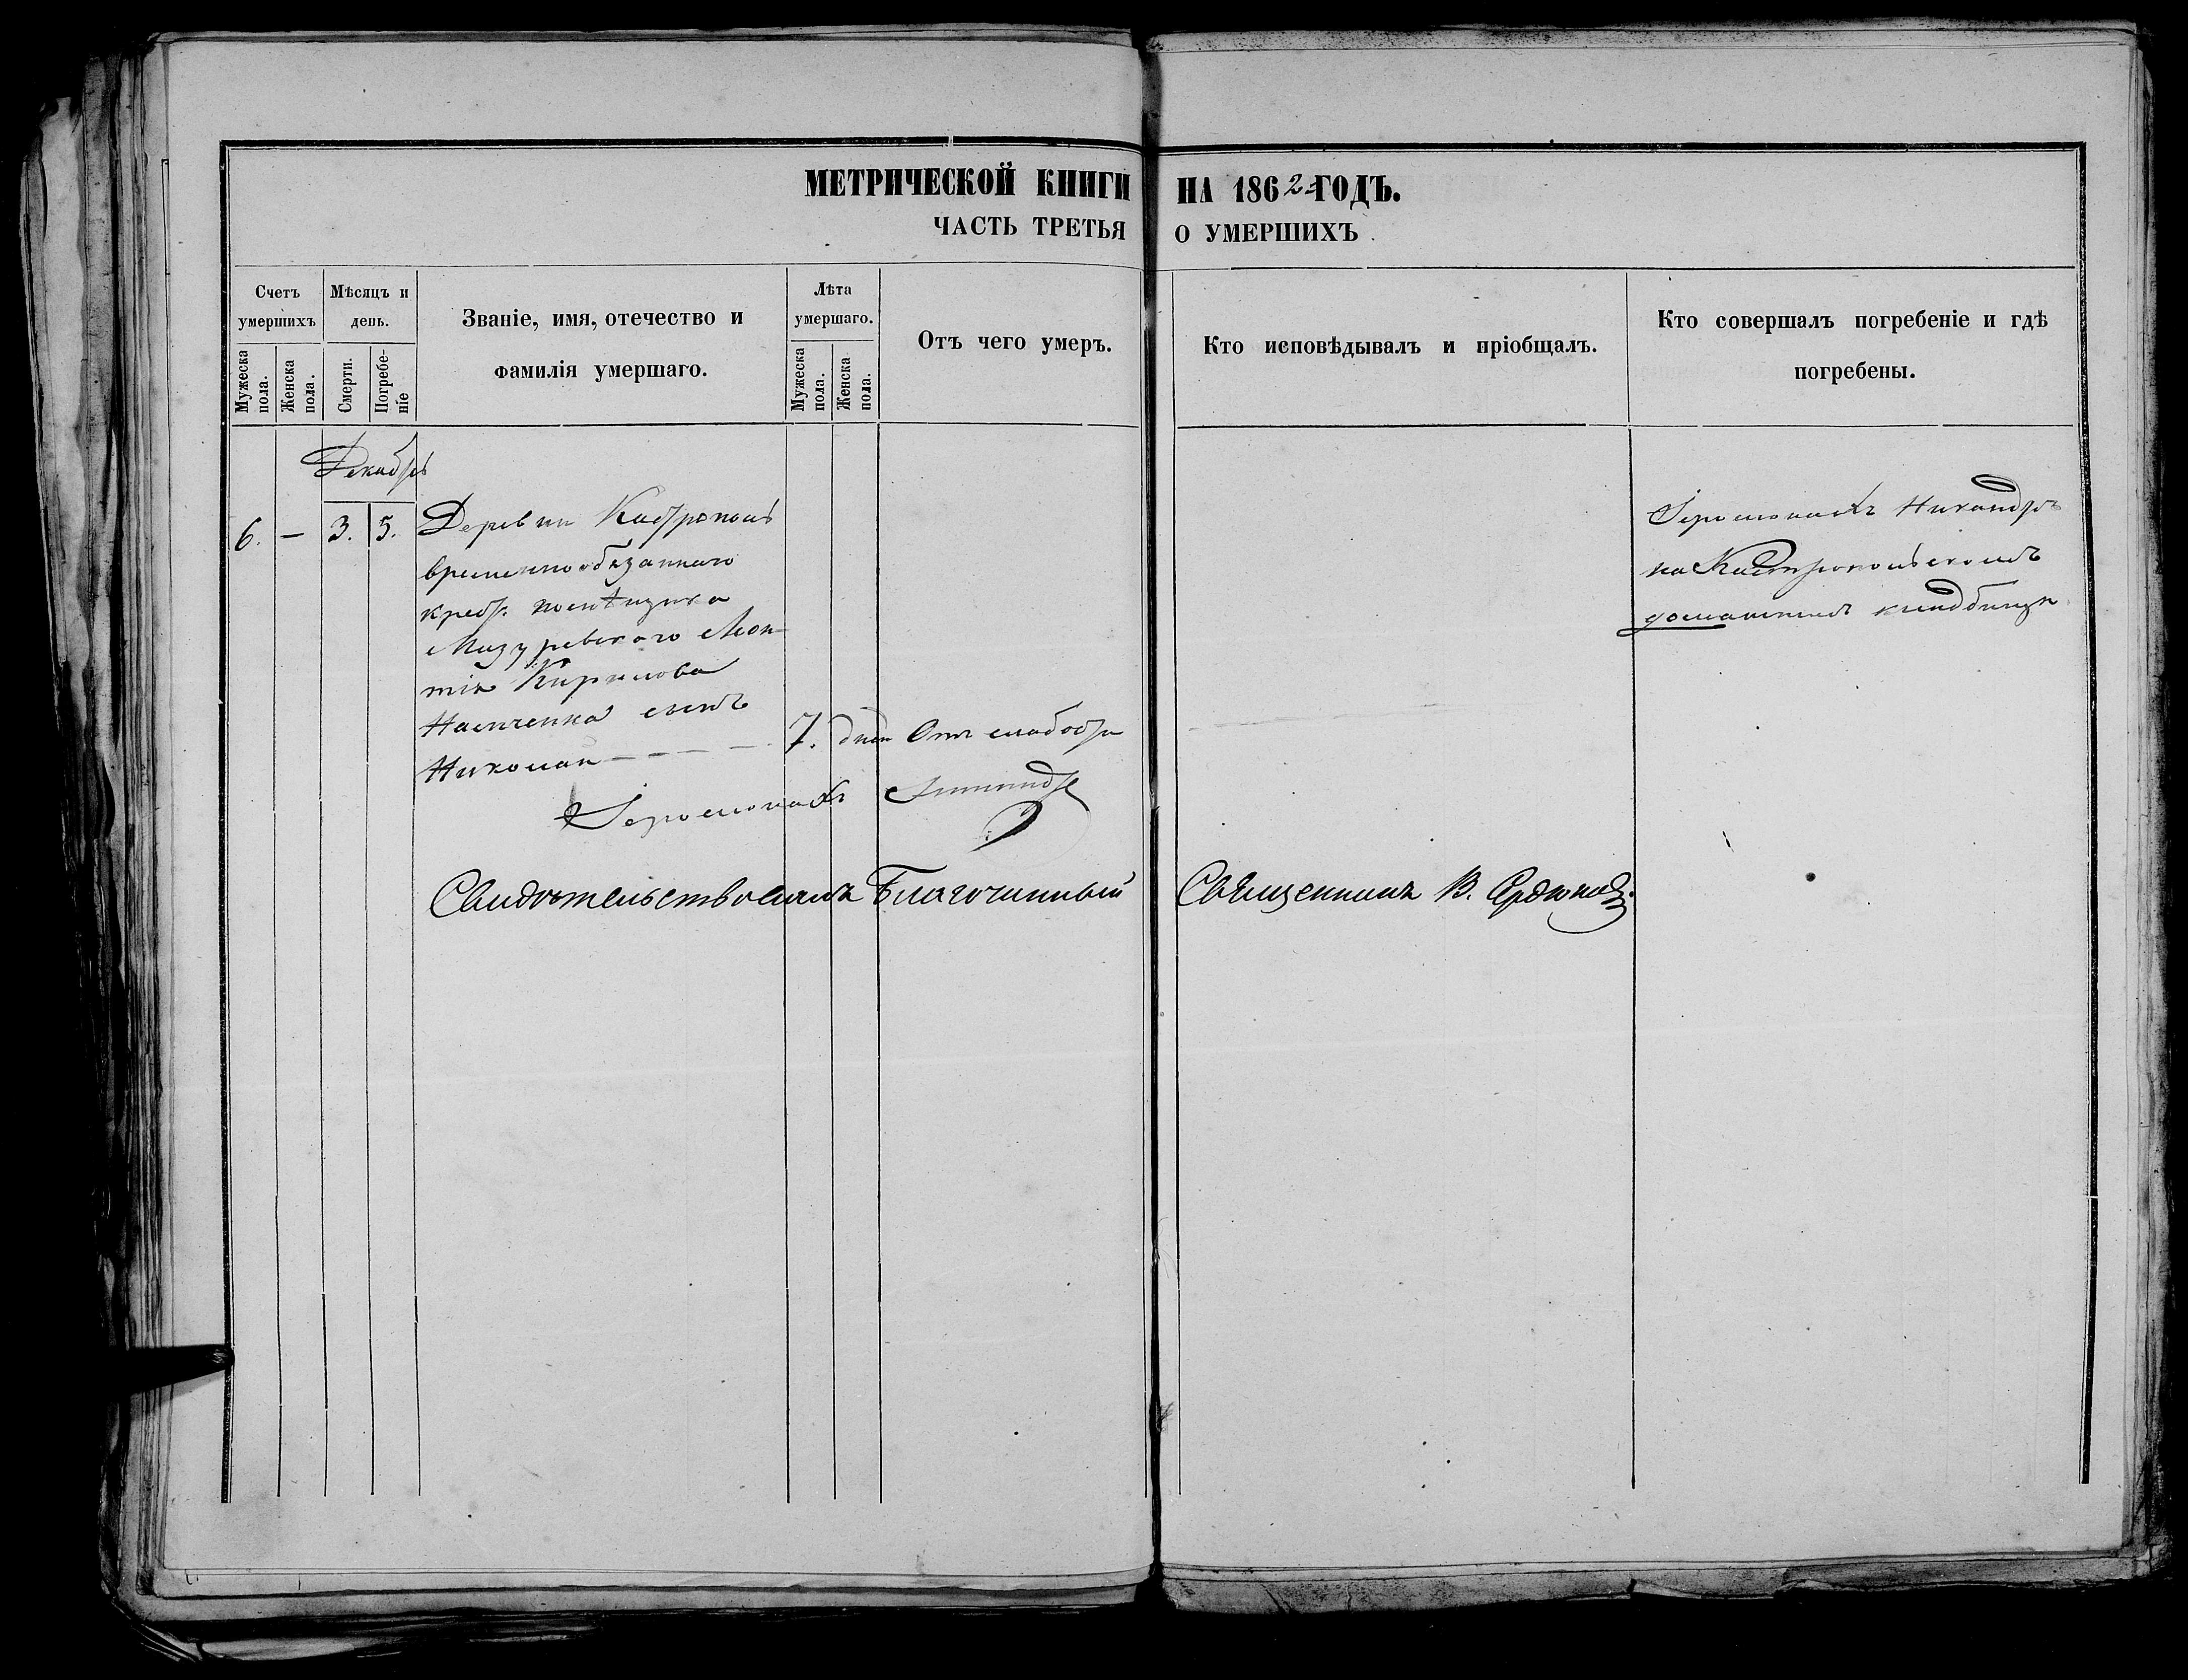 МЕТРИЧЕСКОЙ КНИГИ НА 1862 ГОДЪ.
ЧАСТЬ ТРЕТЬЯ О УМЕРШИХЪ
Счетъ умершихъ
Мужеска пола.
Женска пола.
Мѣсяцъ и день.
Смерти.
Погребеніе
Званіе, имя, отечество и
фамилія умершаго.
Лѣта умершаго.
Мужеска пола.
Женска пола.
Отъ чего умеръ.
Кто исповѣдывалъ и пріобщалъ.
Кто совершалъ погребеніе и гдѣ
погребены.
Декабрь
6. — 3. 5. Деревни Кастрополь
временнообязаннаго
крест. помѣщика
Мазуревского Леон-
тія Кирилова
сынъ
Николай 7. дней Отъ слабости
Іеромонахъ Никандръ
на Кастропольскомъ
домашнемъ кладбищѣ
Іеромонахъ
Свидѣтельствовалъ Благочинный Священникъ В.